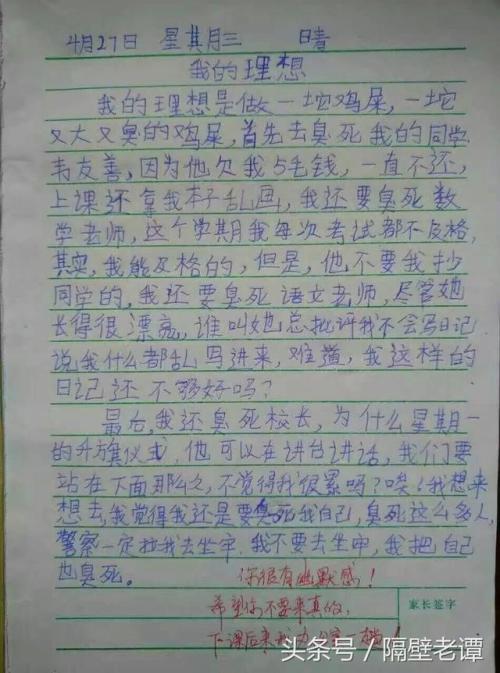 4月27日 星其月三 晴
我的理想
我的理想是做一坨鸡屎,一坨
又大又臭的鸡屎,首先去臭死我的同学
韦友善,因为他欠我5毛钱,一直不还,
上课还拿我本子乱画,我还要臭死数
学老师,这个学期我每次考试都不及格,
其实,我能及格的,但是,他不要我抄
同学的,我还要臭死语文老师,尽管她
长得很漂亮,谁叫她总批评我不会写日记
说我什么都乱写进来,难道,我这样的
日记还不够好吗?
最后,我还臭死校长,为什么星期一
的升旗仪式,他可以在讲台讲话,我们要
站在下面那么久,不觉得我很累吗?唉!我想来
想去,我觉得我还是要臭死我自己,臭死这么多人,
警察一定拉我去坐牢,我不要去坐牢,我把自己
也臭死。
你很有幽默感!
希望你不要来真的,
家长签字
下课后来我办公室一趟!
头条号/隔壁老谭